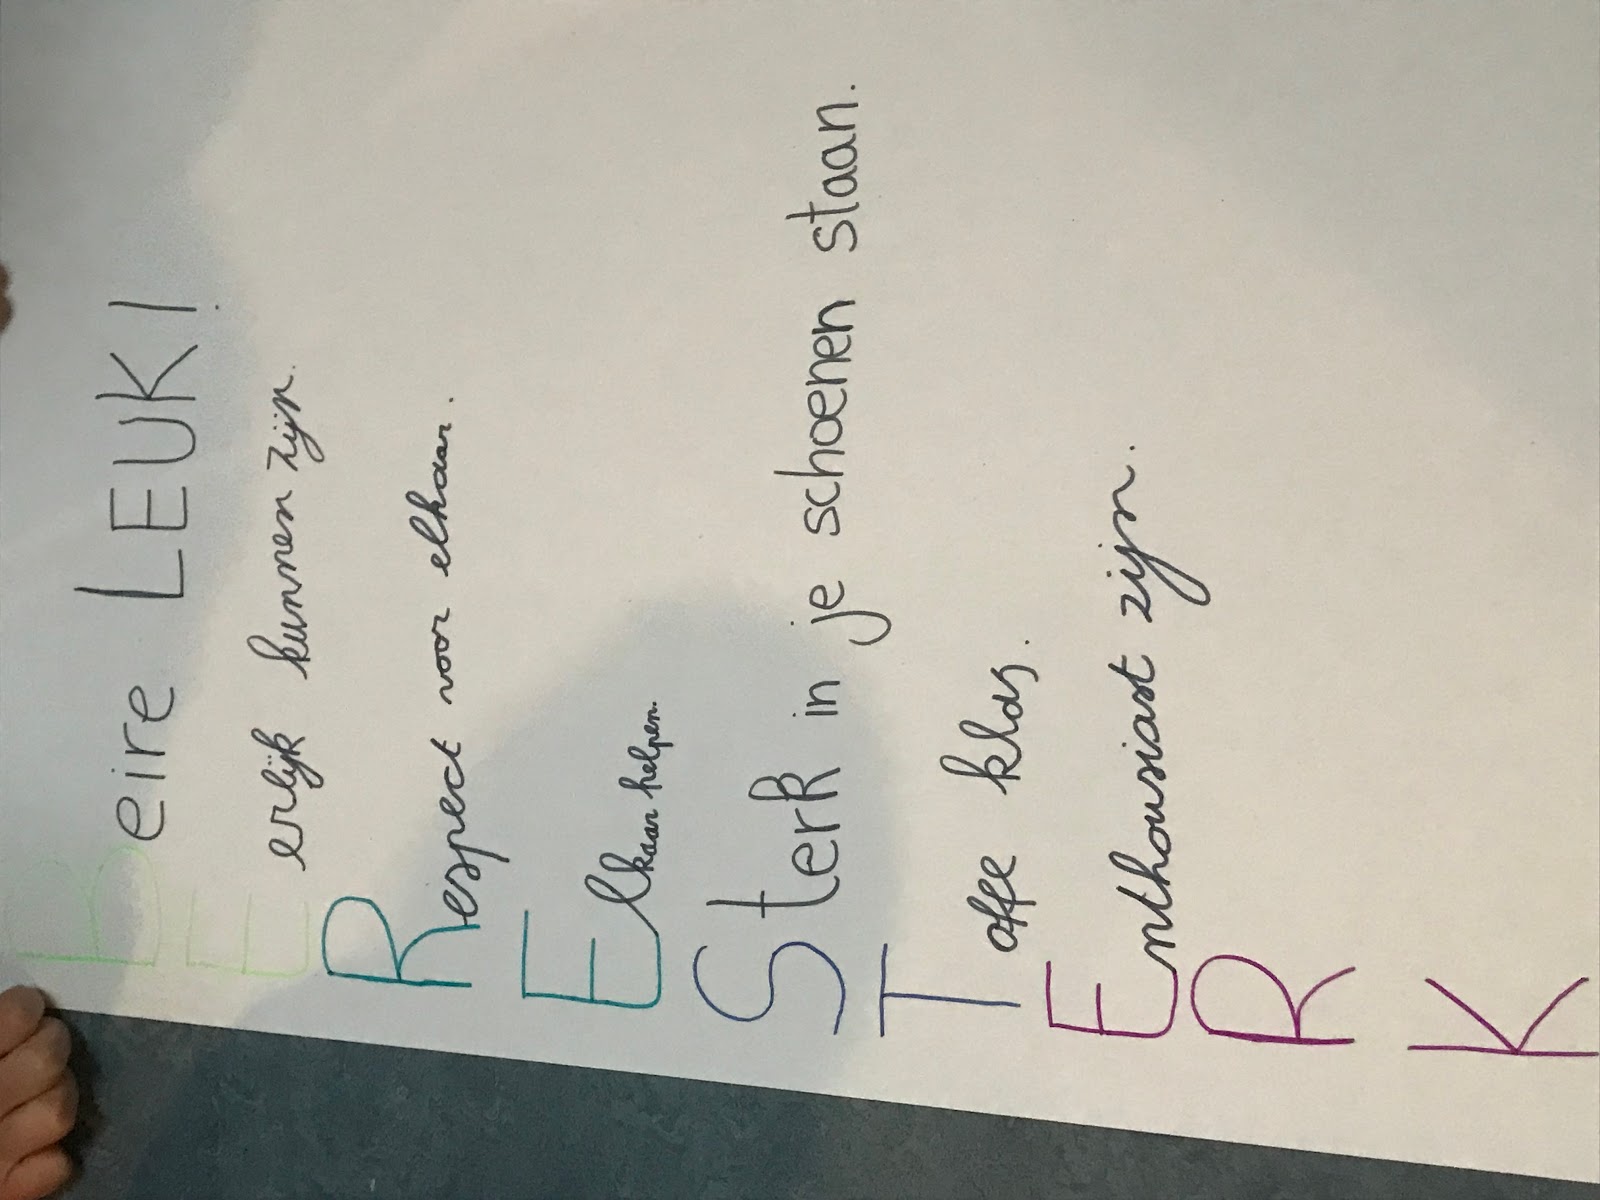 Beire LEUK!
Eerlijk kunnen zijn.
Respect voor elkaar.
Elkaar helpen.
Sterk in je schoenen staan.
Toffe klas.
Enthousiast zijn.
R
K